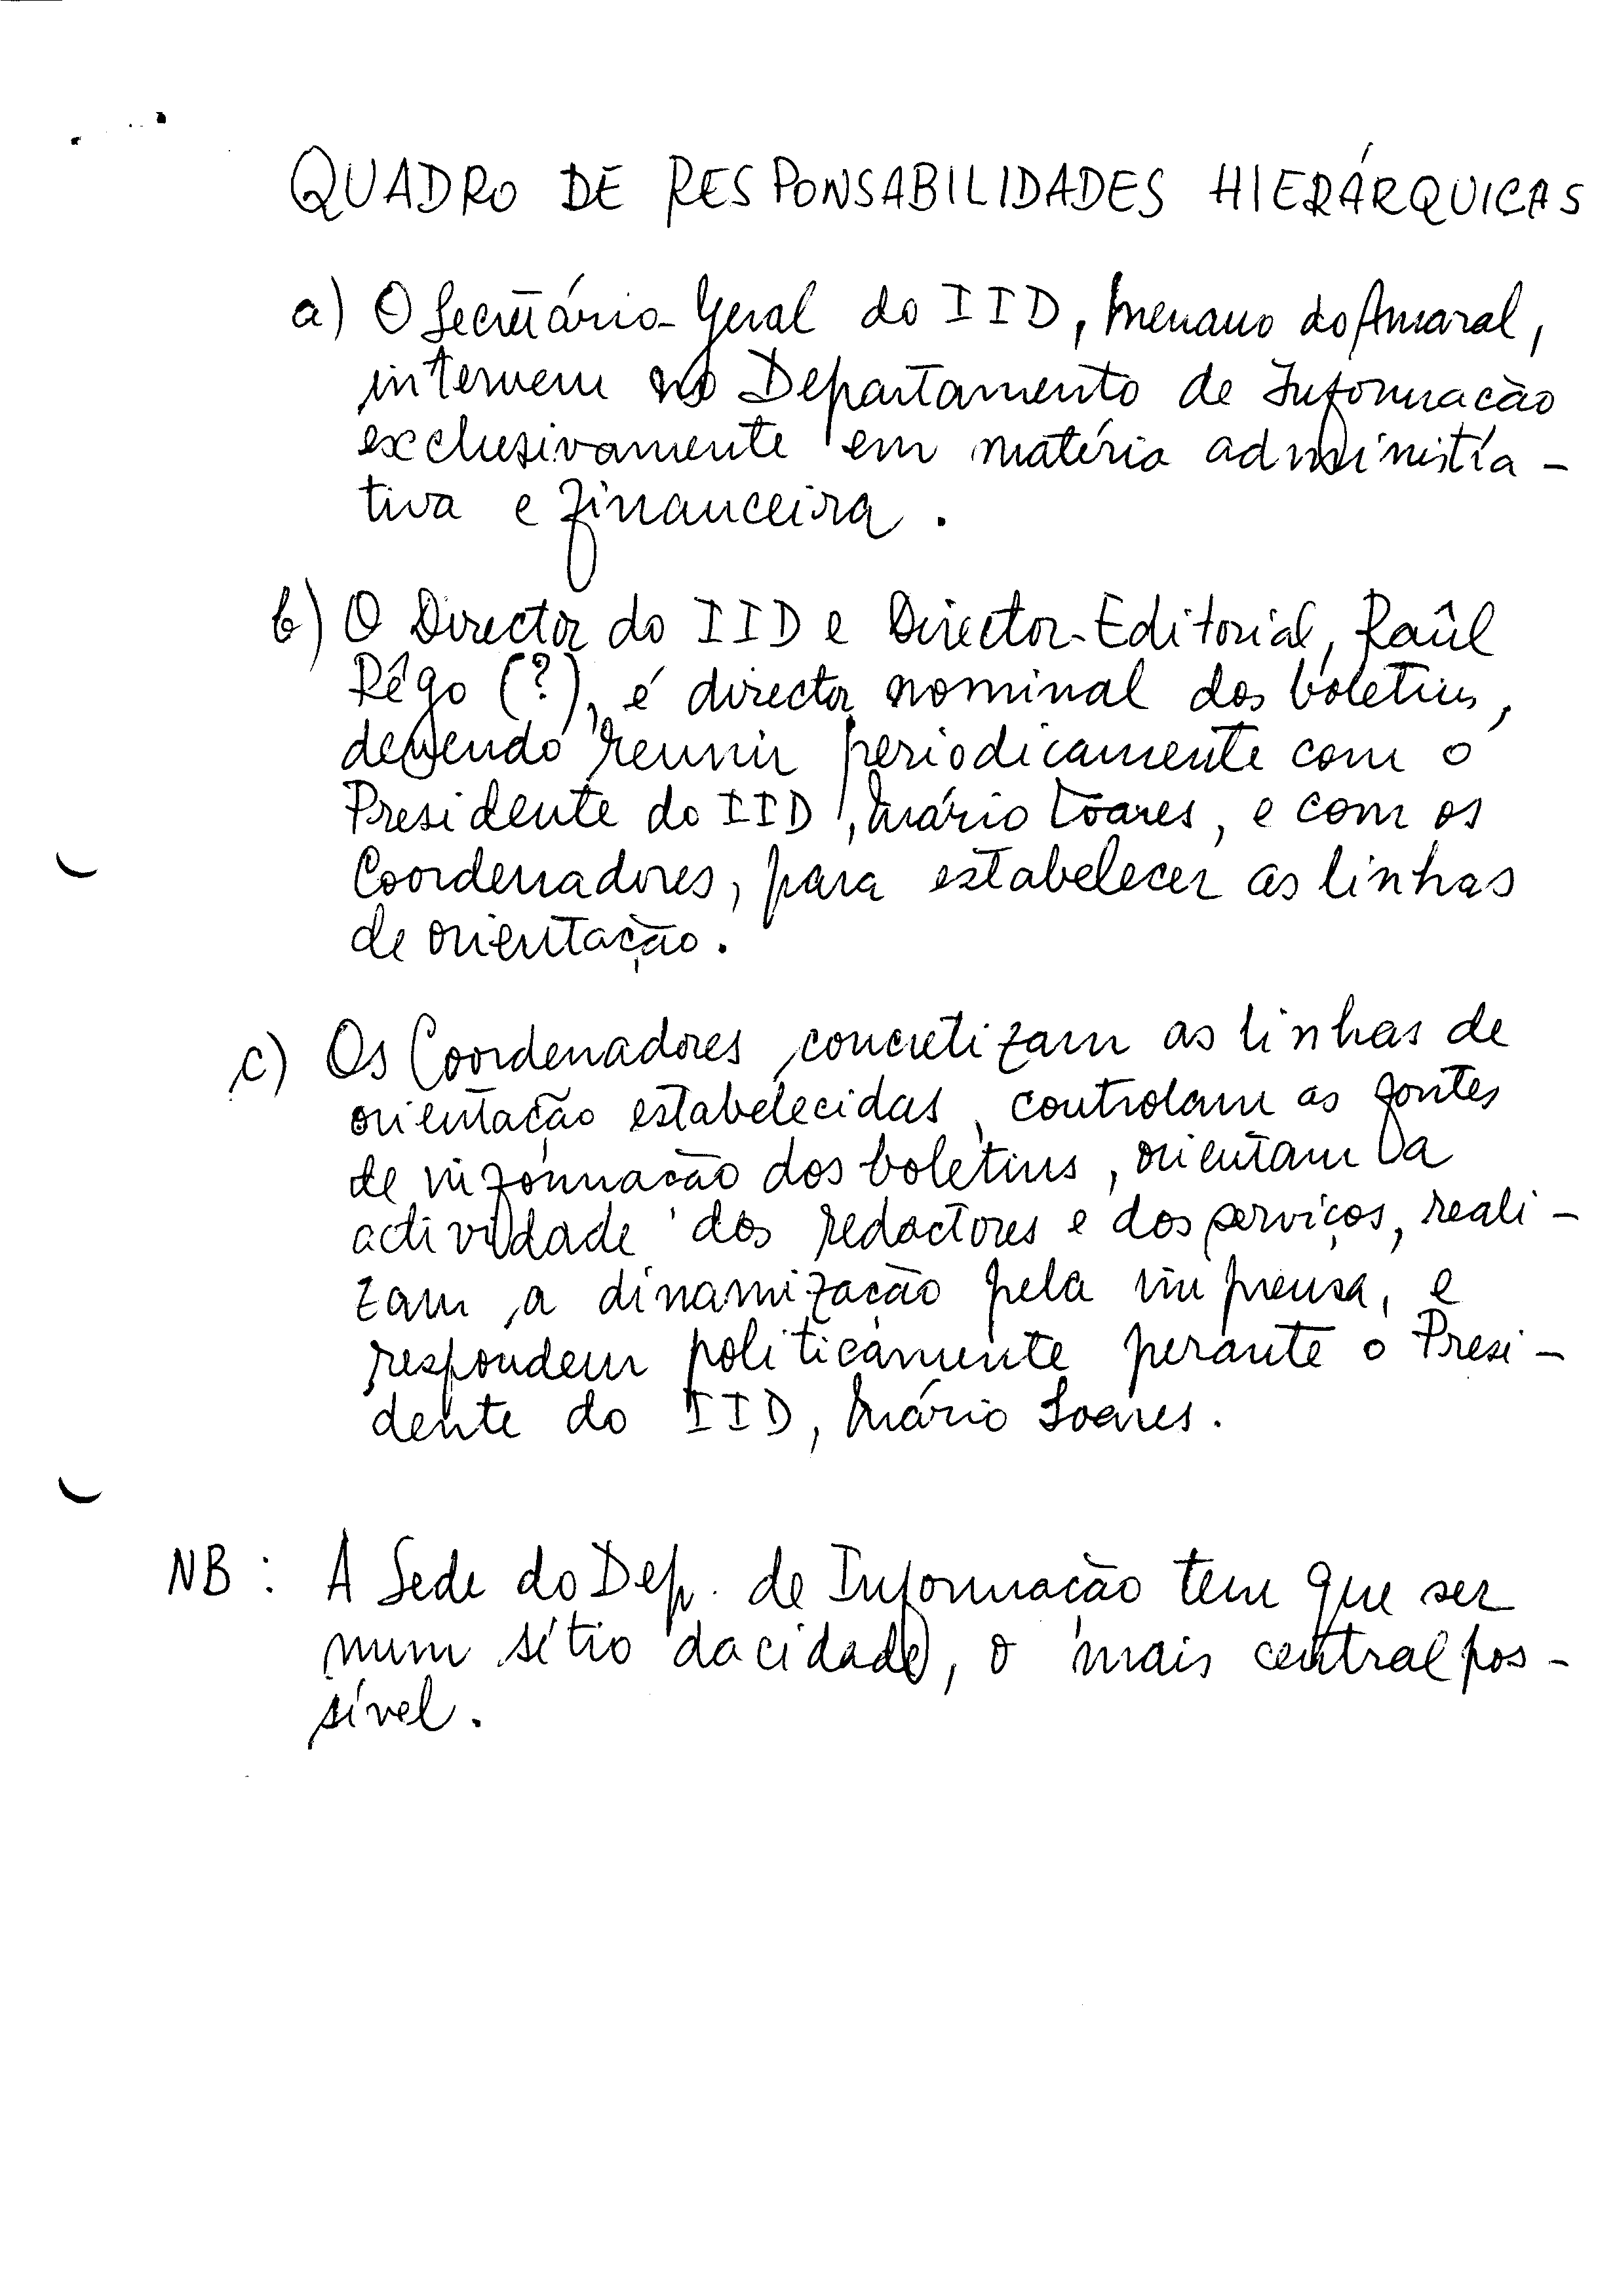 QUADRO DE RESPONSABILIDADES HIERÁRQUICAS
a) O Secretário-Geral do IID, Menano do Amaral,
intervem no Departamento de Informação
exclusivamente em matéria administra-
tiva e financeira.
b) O Director do IID e Director-Editorial, Raûl
Rêgo (?), é director nominal dos boletins,
devendo reunir periodicamente com o
Presidente do IID, Mário Soares, e com os
Coordenadores, para estabelecer as linhas
de orientação.
c) Os Coordenadores concretizam as linhas de
orientação estabelecidas, controlam as fontes
de informação dos boletins, orientam a
actividade dos redactores e dos serviços, reali-
zam a dinamização pela imprensa, e
respondem politicamente perante o Presi-
dente do IID, Mário Soares.
NB: A Sede do Dep. de Informação tem que ser
num sítio da cidade, o mais central pos-
sível.